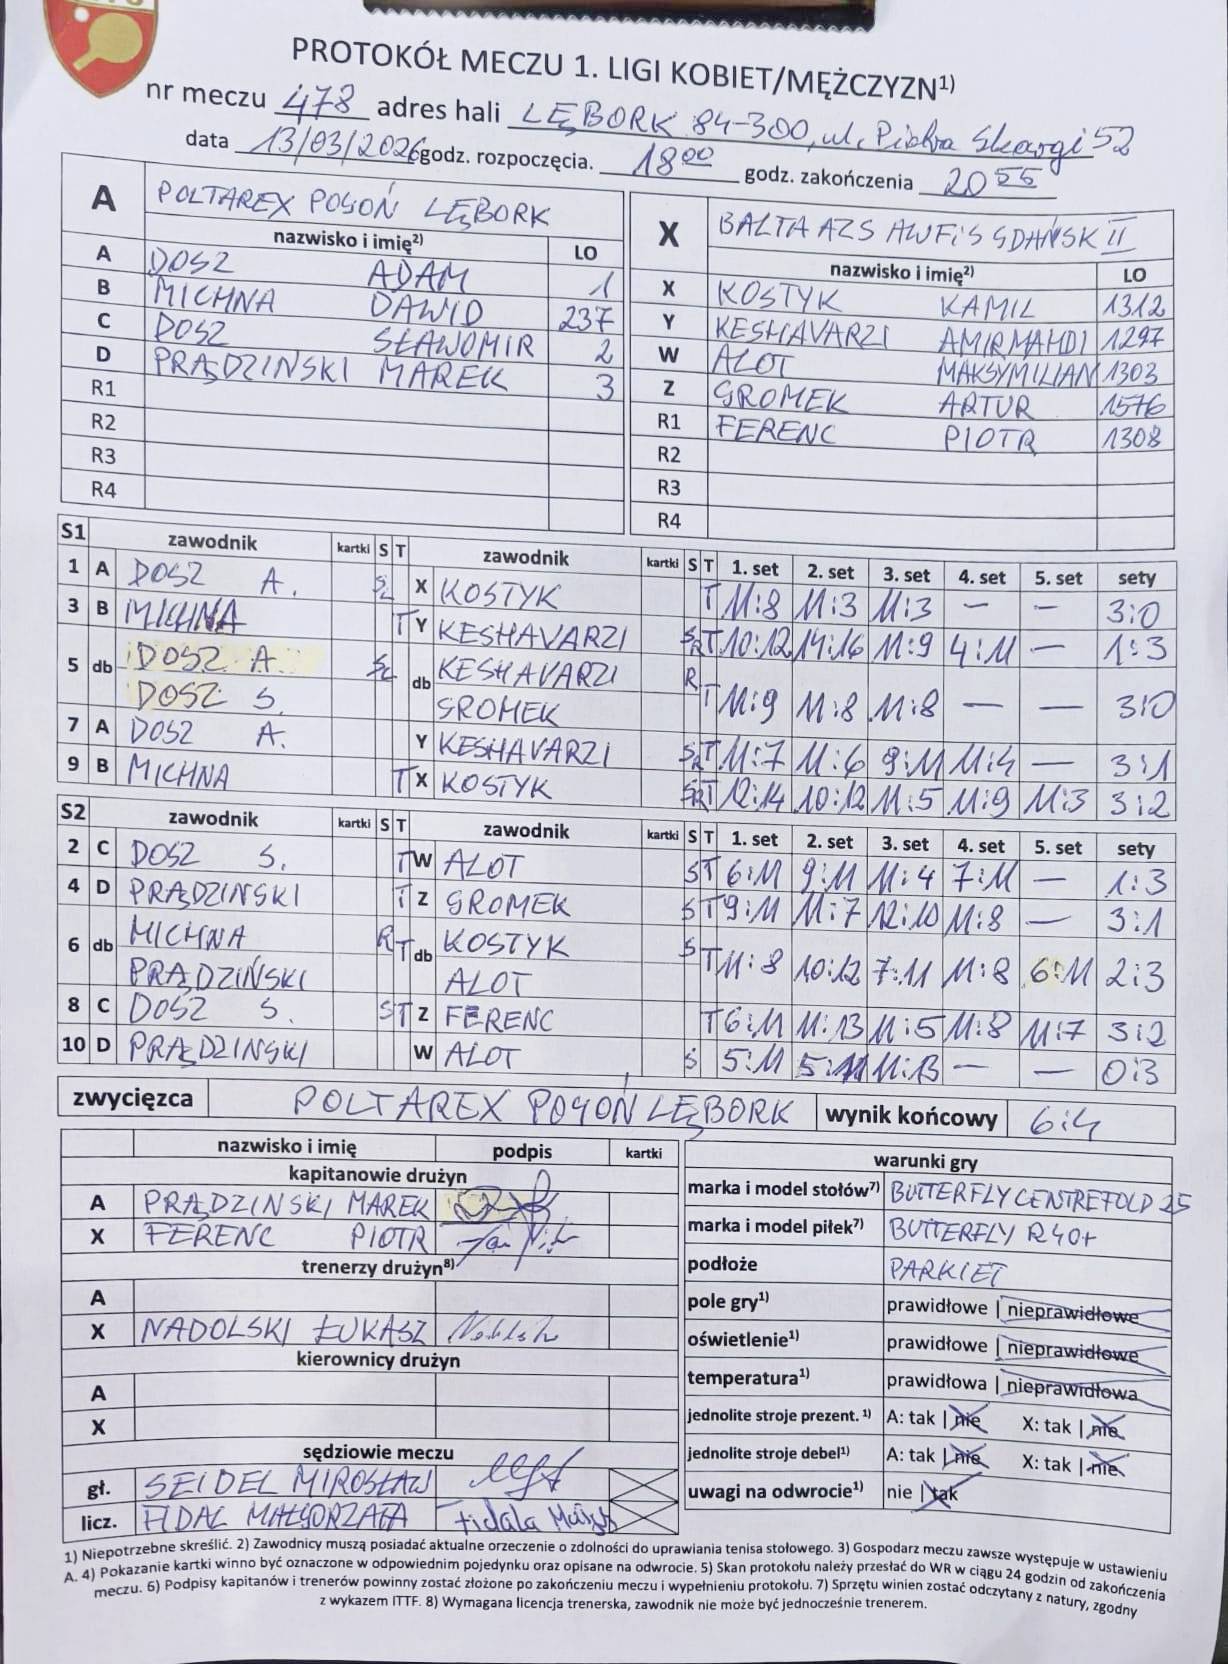 PROTOKÓŁ MECZU 1. LIGI KOBIET/MĘŻCZYZN1)
nr meczu 478 adres hali LĘBORK 84-300, ul. Piotra Skargi 52
data 13/03/2026 godz. rozpoczęcia. 18 00 godz. zakończenia 20 55
A POLTAREX POGOŃ LĘBORK
nazwisko i imię2) LO
A DOSZ ADAM 1
B MICHNA DAWID 237
C DOSZ SŁAWOMIR 2
D PRĄDZIŃSKI MAREK 3
R1
R2
R3
R4
X BALTA AZS AWFiS GDAŃSK II
nazwisko i imię2) LO
X KOSTYK KAMIL 1312
Y KESHAVARZI AMIRMAHDI 1297
W ALOT MAKSYMILIAN 1303
Z GROMEK ARTUR 1576
R1 FERENC PIOTR 1308
R2
R3
R4
S1 zawodnik kartki S T zawodnik kartki S T 1. set 2. set 3. set 4. set 5. set sety
1 A DOSZ A. X KOSTYK T 11:8 11:3 11:3 — — 3:0
3 B MICHNA T Y KESHAVARZI SR T 10:12 14:16 11:9 4:11 — 1:3
5 db DOSZ A. db KESHAVARZI R
DOSZ S. GROMEK T 11:9 11:8 11:8 — — 3:0
7 A DOSZ A. Y KESHAVARZI SR T 11:7 11:6 9:11 11:4 — 3:1
9 B MICHNA T X KOSTYK SR T 12:14 10:12 11:5 11:9 11:3 3:2
S2 zawodnik kartki S T zawodnik kartki S T 1. set 2. set 3. set 4. set 5. set sety
2 C DOSZ S. T W ALOT S T 6:11 9:11 11:4 7:11 — 1:3
4 D PRĄDZINSKI T Z GROMEK S T 9:11 11:7 12:10 11:8 — 3:1
6 db MICHNA R T db KOSTYK S T 11:8 10:12 7:11 11:8 6:11 2:3
PRĄDZIŃSKI ALOT
8 C DOSZ S. S T Z FERENC T 6:11 11:13 11:5 11:8 11:7 3:2
10 D PRĄDZINSKI W ALOT S 5:11 5:11 11:13 — — 0:3
zwycięzca POLTAREX POGOŃ LĘBORK wynik końcowy 6:4
nazwisko i imię podpis kartki
kapitanowie drużyn
A PRĄDZINSKI MAREK
X FERENC PIOTR
trenerzy drużyn8)
A
X NADOLSKI ŁUKASZ
kierownicy drużyn
A
X
sędziowie meczu
gł. SEIDEL MIROSŁAW
licz. FIDAL MAŁGORZATA
warunki gry
marka i model stołów7) BUTTERFLY CENTREFOLD 25
marka i model piłek7) BUTTERFLY R40+
podłoże PARKIET
pole gry1) prawidłowe | nieprawidłowe
oświetlenie1) prawidłowe | nieprawidłowe
temperatura1) prawidłowa | nieprawidłowa
jednolite stroje prezent. 1) A: tak | nie X: tak | nie
jednolite stroje debel1) A: tak | nie X: tak | nie
uwagi na odwrocie1) nie | tak
1) Niepotrzebne skreślić. 2) Zawodnicy muszą posiadać aktualne orzeczenie o zdolności do uprawiania tenisa stołowego. 3) Gospodarz meczu zawsze występuje w ustawieniu
A. 4) Pokazanie kartki winno być oznaczone w odpowiednim pojedynku oraz opisane na odwrocie. 5) Skan protokołu należy przesłać do WR w ciągu 24 godzin od zakończenia
meczu. 6) Podpisy kapitanów i trenerów powinny zostać złożone po zakończeniu meczu i wypełnieniu protokołu. 7) Sprzętu winien zostać odczytany z natury, zgodny
z wykazem ITTF. 8) Wymagana licencja trenerska, zawodnik nie może być jednocześnie trenerem.